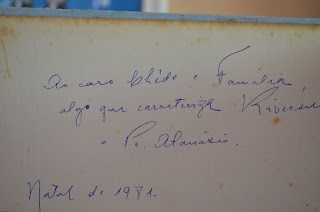 Ao caro Clide e Família
algo que caracteriza
o Pe. Atanásio.
Natal de 1981.